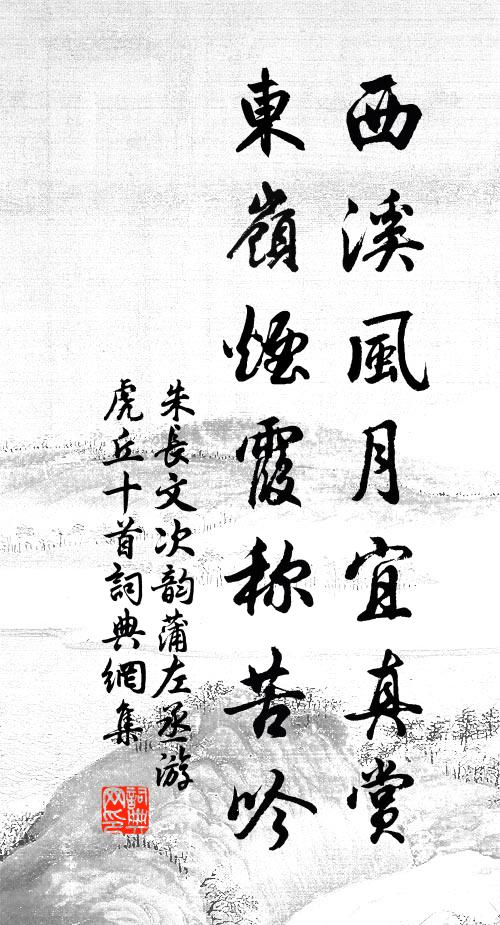 西溪風月宜真賞
東嶺煙霞称苦吟
朱長文次韵蒲左丞游
虎丘十首詞典網集